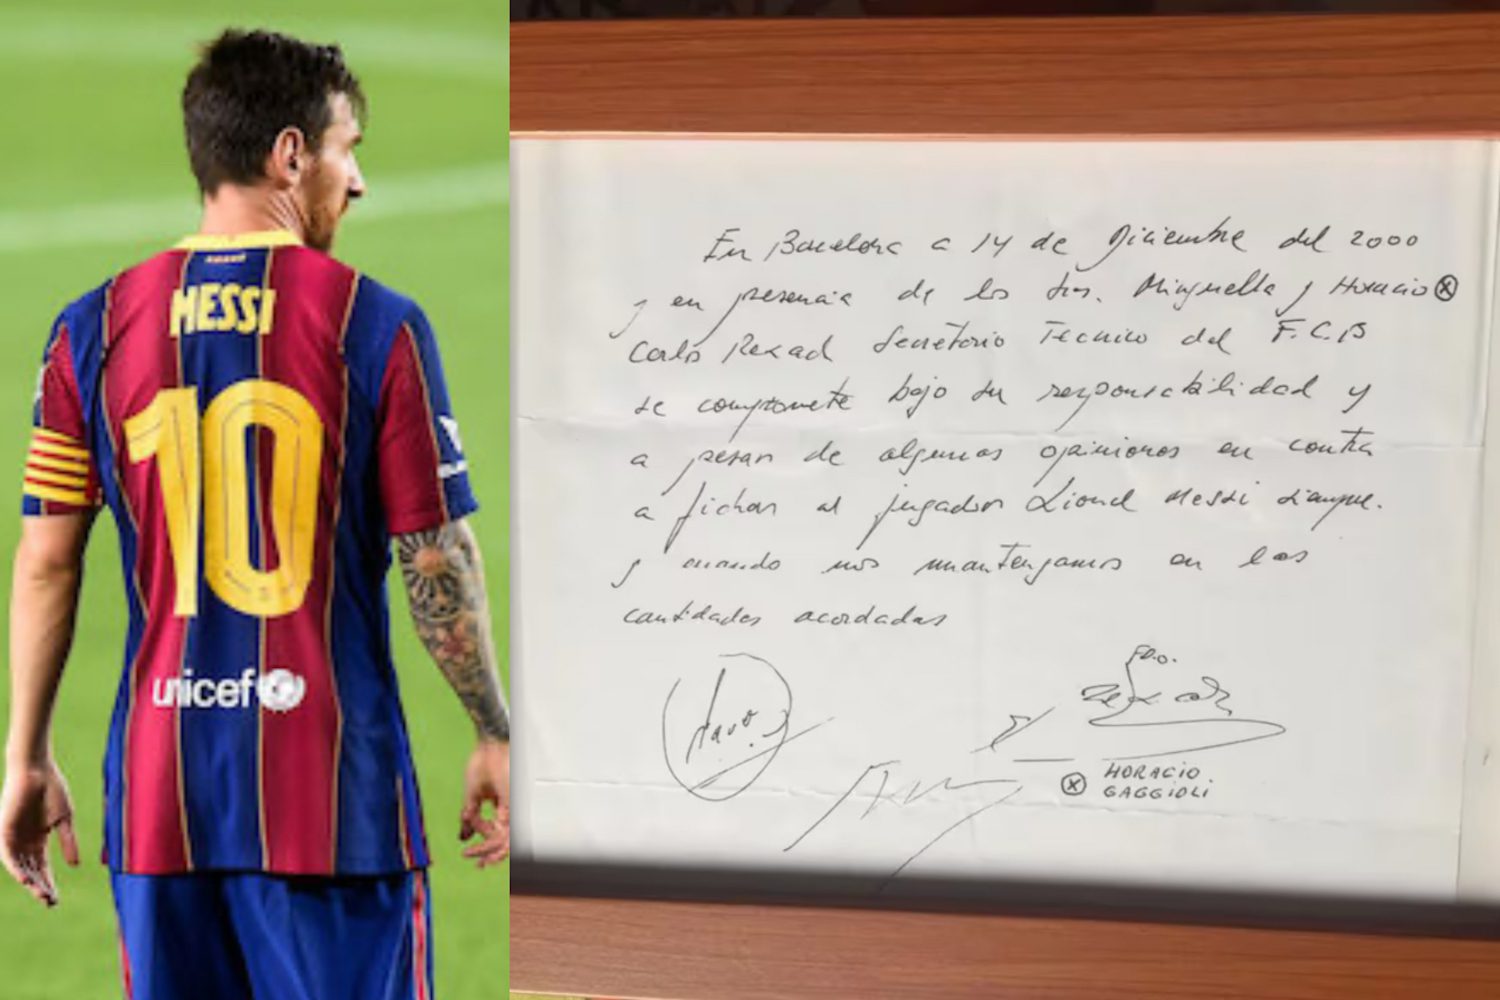 MESSI
10
unicef
En Barcelona a 14 de Diciembre del 2000
y en presencia de los Srs. Minguella y Horacio
Carlos Rexach Secretario Tecnico del F.C.B
se compromete bajo su responsabilidad y
a pesar de algunas opiniones en contra
a fichar al jugador Lionel Messi siempre.
y cuando nos mantengamos en las
cantidades acordadas
HORACIO
GAGGIOLI